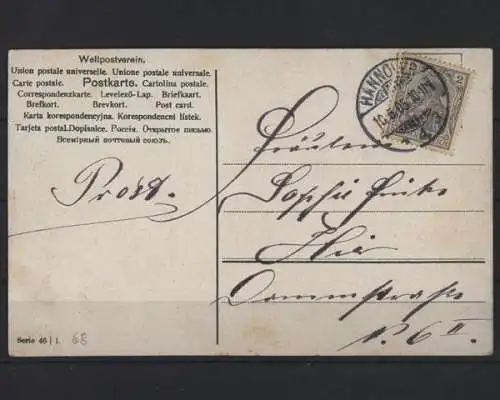 Weltpostverein.
Union postale universelle. Unione postale universale.
Carte postale. Postkarte. Cartolina postale.
Correspondenzkarte. Levelező-Lap. Briefkaart.
Brefkort. Brevkort. Post card.
Karta korespondencyjna. Korespondencni lístek.
Tarjeta postal. Dopisnice. Россія. Открытое письмо.
Всемірный почтовый союзъ.
HANNOVER
2
Fräulein
Prost.
Sophie
Hier
Dammstrasse
N. 6 II.
Serie 46 | 1. 68